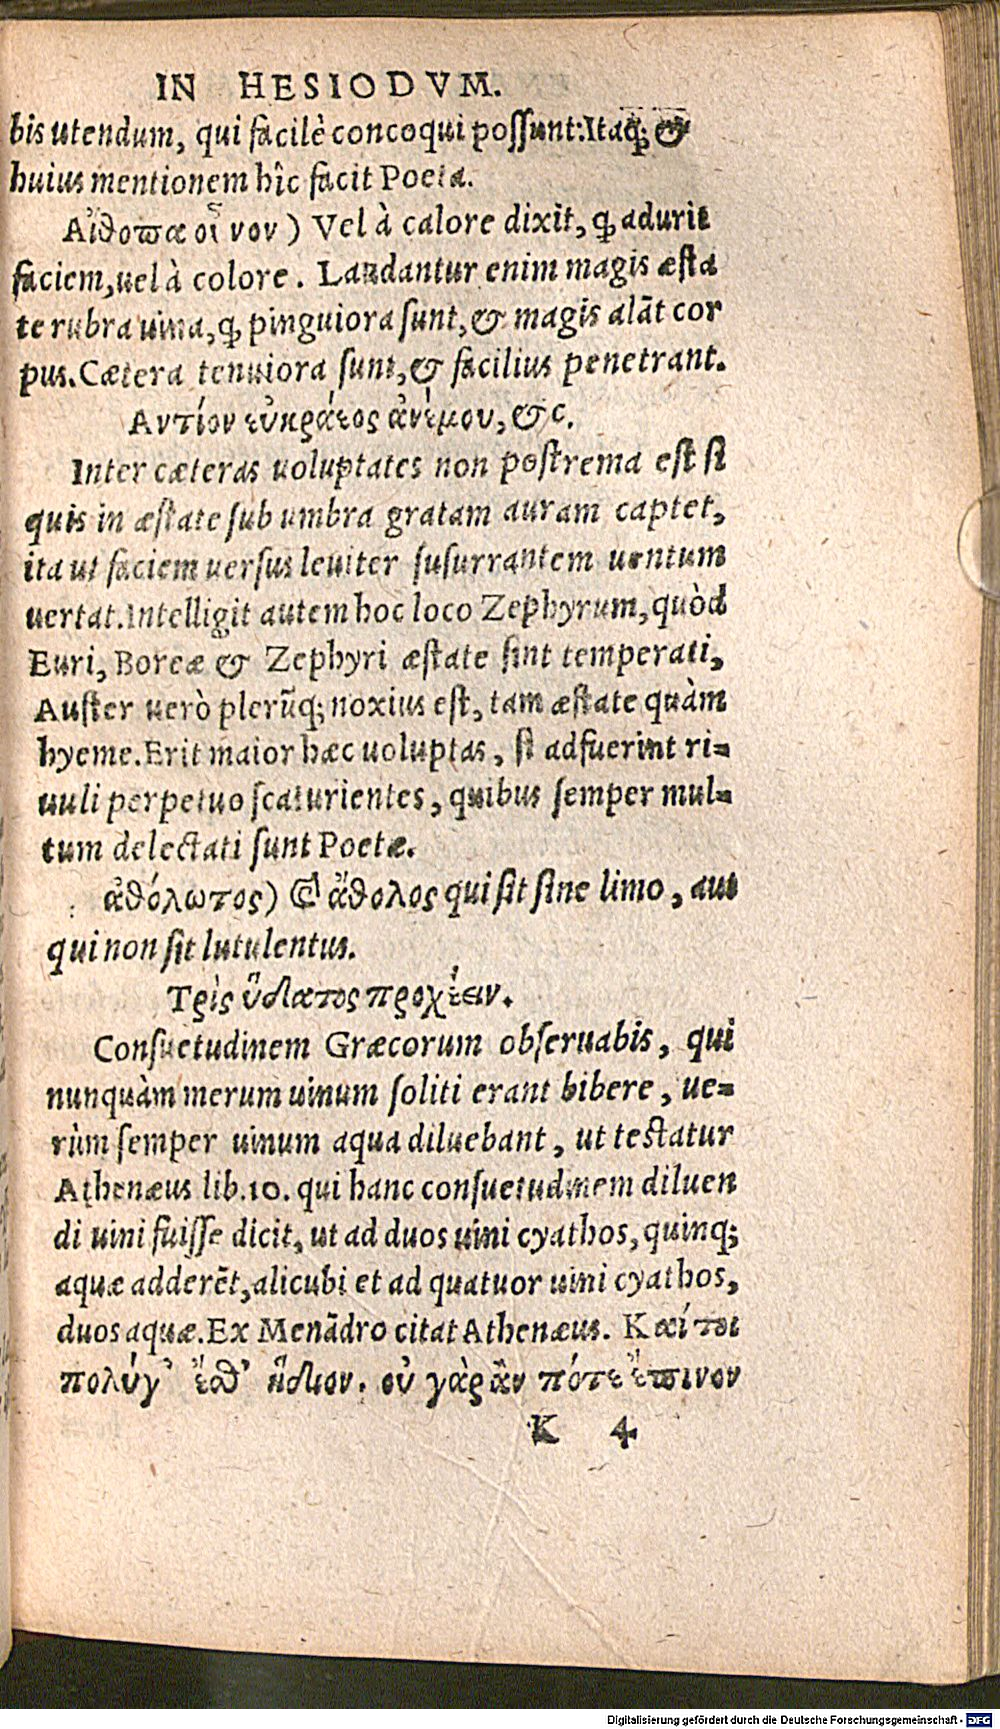 IN HESIODVM.
bis utendum, qui facilè concoqui possunt: Itaq; &
huius mentionem hîc facit Poeta.
Αἴθοπα οἶνον) Vel à calore dixit, ꝙ adurit
faciem, uel à colore. Laudantur enim magis æsta
te rubra uina, ꝙ pinguiora sunt, & magis alãt cor
pus. Cætera tenuiora sunt, & facilius penetrant.
Αντίον εὐκράεος ἀνέμου, &c.
Inter cæteras uoluptates non postrema est si
quis in æstate sub umbra gratam auram captet,
ita ut faciem uersus leuiter susurrantem uentum
uertat. Intelligit autem hoc loco Zephyrum, quòd
Euri, Boreæ & Zephyri æstate sint temperati,
Auster uerò plerũq; noxius est, tam æstate quàm
hyeme. Erit maior hæc uoluptas, si adfuerint ri=
uuli perpetuo scaturientes, quibus semper mul=
tum delectati sunt Poetæ.
ἀθόλωτος) Et ἄθολος qui sit sine limo, aut
qui non sit lutulentus.
Τρὶς ὕδατος προχέειν.
Consuetudinem Græcorum obseruabis, qui
nunquàm merum uinum soliti erant bibere, ue=
rùm semper uinum aqua diluebant, ut testatur
Athenæus lib. 10. qui hanc consuetudinem diluen
di uini fuisse dicit, ut ad duos uini cyathos, quinq;
aquæ adderẽt, alicubi et ad quatuor uini cyathos,
duos aquæ. Ex Menãdro citat Athenæus. Καίτοι
πολύγ' ἔσθ' ἥδιον. οὐ γὰρ ἂν πότε ἔπινον
K 4
Digitalisierung gefördert durch die Deutsche Forschungsgemeinschaft - DFG